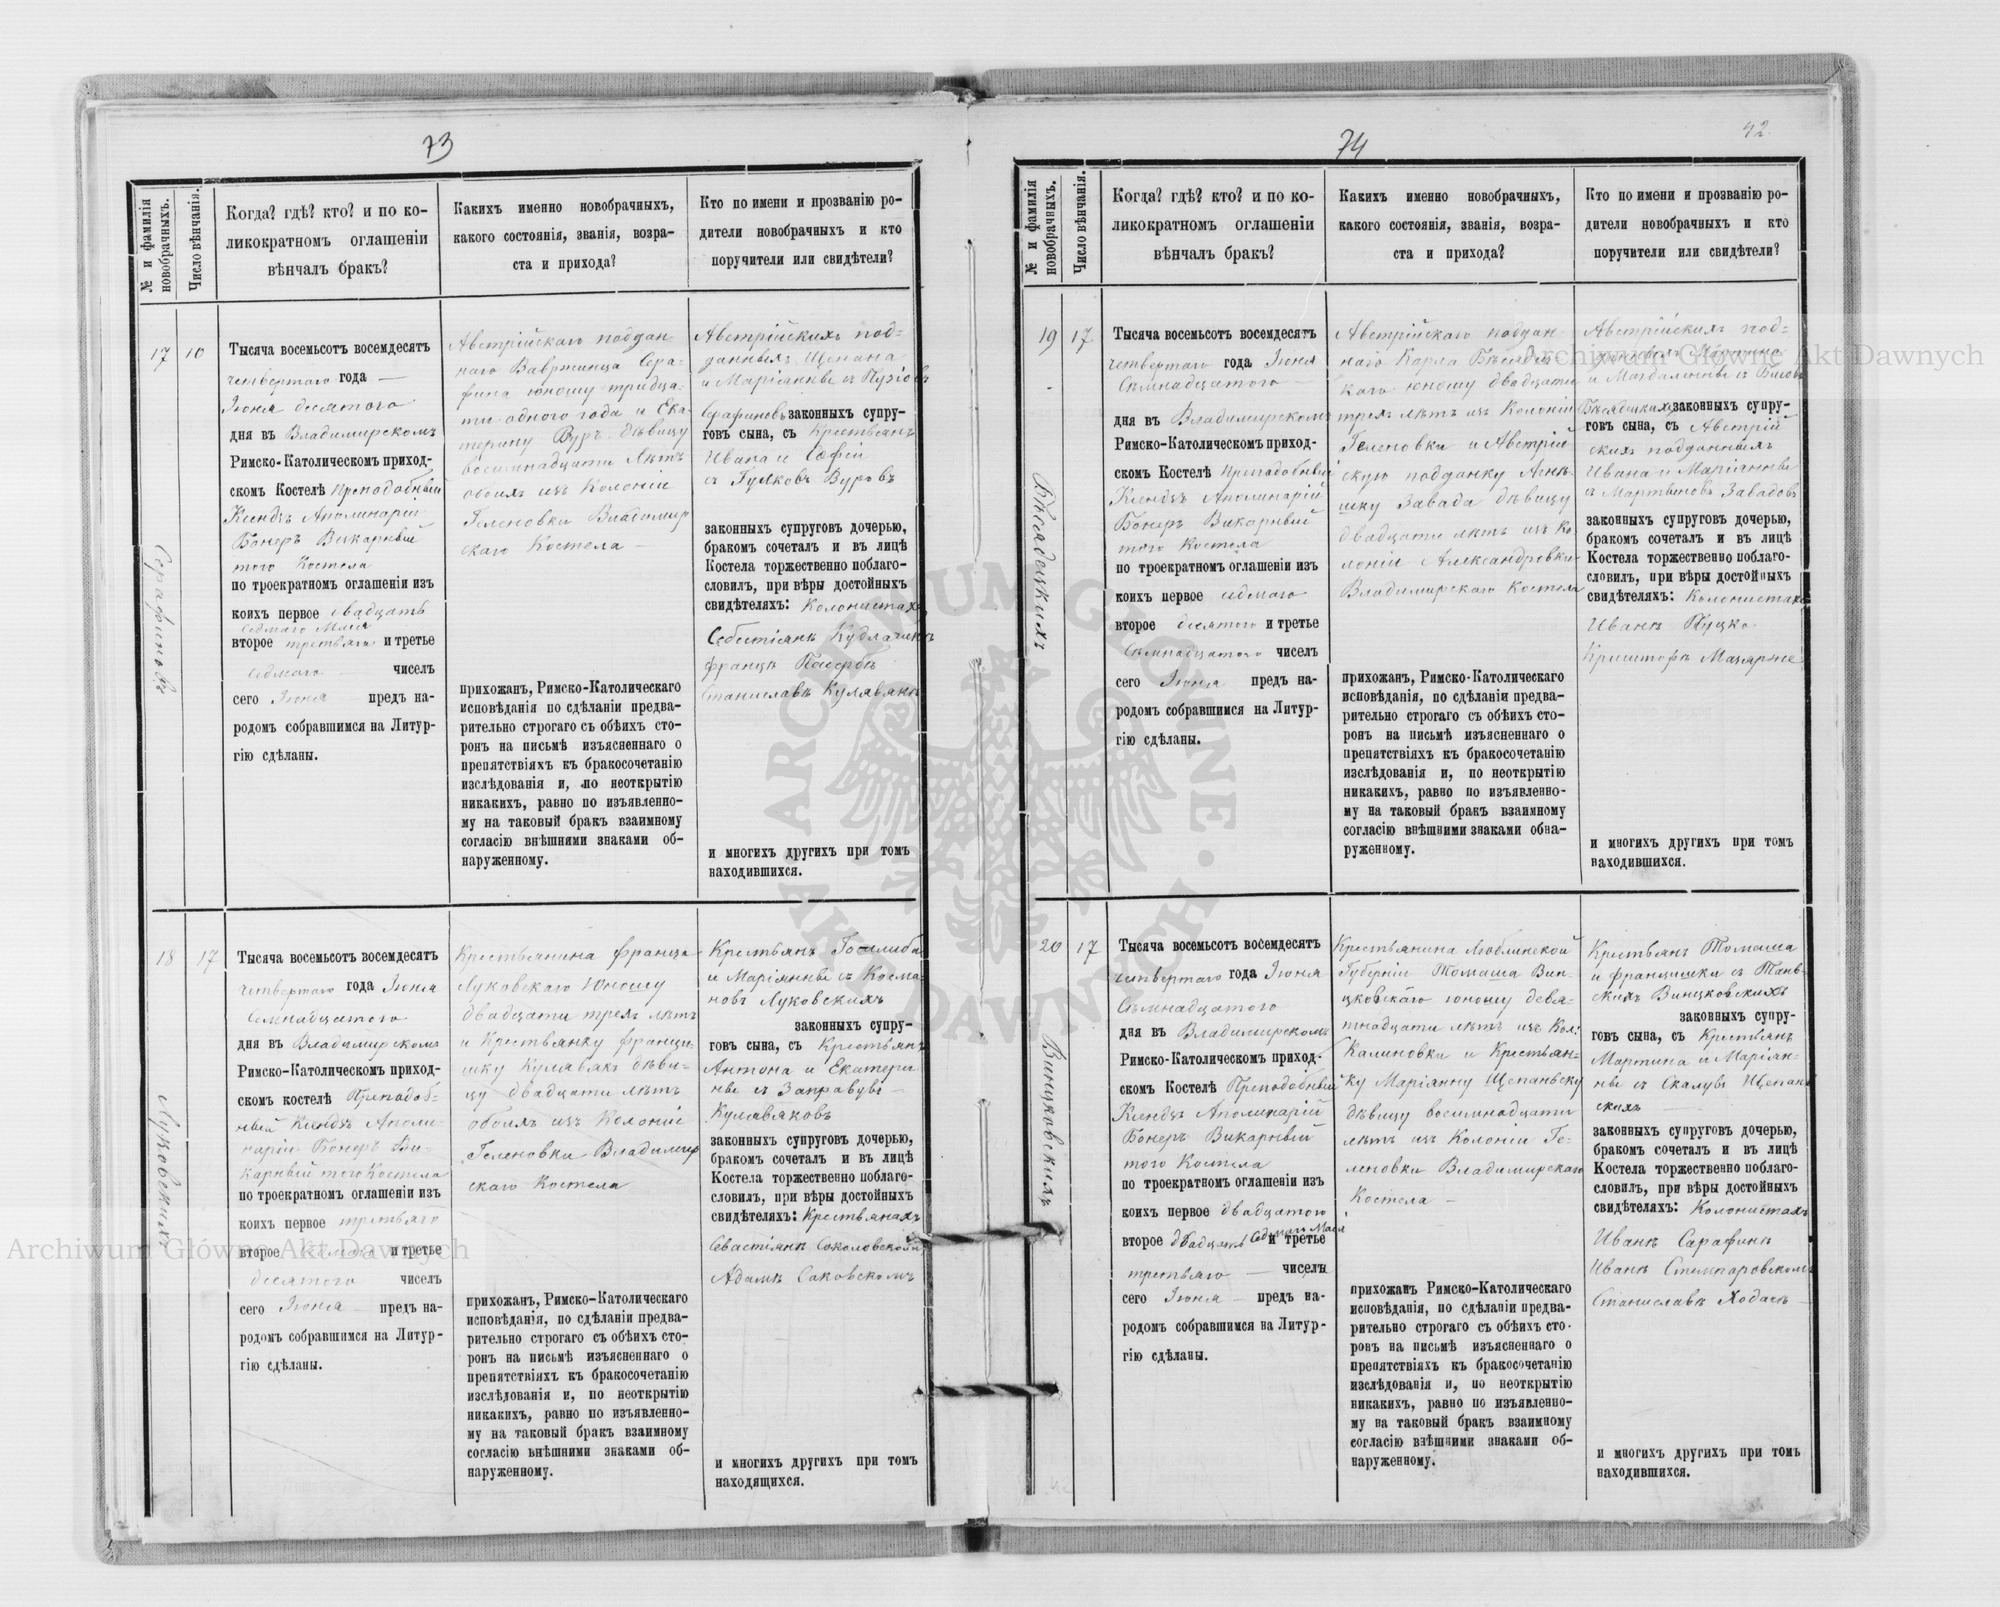 73
№ и фамилія новобрачныхъ.
Число вѣнчанія.
Когда? гдѣ? кто? и по ко-
ликократномъ оглашеніи
вѣнчалъ бракъ?
Какихъ именно новобрачныхъ,
какого состоянія, званія, возра-
ста и прихода?
Кто по имени и прозванію ро-
дители новобрачныхъ и кто
поручители или свидѣтели?
17
Серафиновъ
10
Тысяча восемьсотъ восемдесятъ
четвертого года —
Іюня десятого
дня въ Владимирскомъ
Римско-Католическомъ приход-
скомъ Костелѣ Преподобный
Ксендзъ Аполинарій
Бонеръ Викарный
того Костела
по троекратномъ оглашеніи изъ
коихъ первое двадцать
седмаго Мая
второе третьяго и третье
седмаго — чиселъ
сего Іюня — предъ на-
родомъ собравшимся на Литур-
гію сдѣланы.
Австрійскаго поддан-
наго Вавржинца Сера-
фина юношу тридца-
ти одного года и Ека-
терину Вуръ дѣвицу
восемнадцати лѣтъ
обоихъ изъ Колоніи
Геленовки Владимир
скаго Костела —
прихожанъ, Римско-Католическаго
исповѣданія по сдѣланіи предва-
рительно строгаго съ обѣихъ сто-
ронъ на письмѣ изъясненнаго о
препятствіяхъ къ бракосочетанію
изслѣдованія и, по неоткрытію
никакихъ, равно по изъявленно-
му на таковый бракъ взаимному
согласію внѣшними знаками об-
наруженному.
Австрійскихъ под-
данныхъ Щепана
и Маріанны съ
Серафиновъ законныхъ супру-
говъ сына, съ Крестьянъ
Ивана и Софіи
съ Вуровъ
законныхъ супруговъ дочерью,
бракомъ сочеталъ и въ лицѣ
Костела торжественно поблаго-
словилъ, при вѣры достойныхъ
свидѣтеляхъ: Колонистахъ
Себестіянѣ
францѣ
Станиславѣ Кулявякѣ
и многихъ другихъ при томъ
находившихся.
18
Луковскихъ
17
Тысяча восемьсотъ восемдесятъ
четвертаго года Іюня
Семнадцатого
дня въ Владимирскомъ
Римско-Католическомъ приход-
скомъ костелѣ Преподоб-
ный Ксендзъ Аполи-
нарій Бонеръ Ви-
карный того Костела
по троекратномъ оглашеніи изъ
коихъ первое третьяго
второе седмаго и третье
десятого чиселъ
сего Іюня — предъ на-
родомъ собравшимся на Литур-
гію сдѣланы.
Крестьянина франца
Луковскаго юношу
двадцати трехъ лѣтъ
и Крестьянку франци-
шку Кулявякъ дѣви-
цу двадцати лѣтъ
обоихъ изъ Колоніи
Геленовки Владимир
скаго Костела
прихожанъ, Римско-Католическаго
исповѣданія, по сдѣланіи предва-
рительно строгаго съ обѣихъ сто-
ронъ на письмѣ изъясненнаго о
препятствіяхъ къ бракосочетанію
изслѣдованія и, по неоткрытію
никакихъ, равно по изъявленно-
му на таковый бракъ взаимному
согласію внѣшними знаками об-
наруженному.
Крестьянъ
и Маріянны съ Косма-
новъ Луковскихъ
законныхъ супру-
говъ сына, съ Крестьянъ
Антона и Екатери-
ны съ
Кулавяковъ
законныхъ супруговъ дочерью,
бракомъ сочеталъ и въ лицѣ
Костела торжественно поблаго-
словилъ, при вѣры достойныхъ
свидѣтеляхъ: Крестьянахъ
Севастіянѣ Соколовскомъ
Адамѣ Саковскомъ
и многихъ другихъ при томъ
находящихся.
74
42.
№ и фамилія новобрачныхъ.
Число вѣнчанія.
Когда? гдѣ? кто? и по ко-
ликократномъ оглашеніи
вѣнчалъ бракъ?
Какихъ именно новобрачныхъ,
какого состоянія, званія, возра-
ста и прихода?
Кто по имени и прозванію ро-
дители новобрачныхъ и кто
поручители или свидѣтели?
19
Бѣсядецкихъ
17
Тысяча восемьсотъ восемдесятъ
четвертого года Іюня
Семнадцатого —
дня въ Владимирскомъ
Римско-Католическомъ приход-
скомъ Костелѣ Преподобный
Ксендзъ Аполинарій
Бонеръ Викарный
того Костела
по троекратномъ оглашеніи изъ
коихъ первое седмого
второе десятого и третье
Семнадцатого чиселъ
сего Іюня предъ на-
родомъ собравшимся на Литур-
гію сдѣланы.
Австрійскаго поддан-
наго Карла Бѣсядец-
каго юношу двадцати
трехъ лѣтъ изъ Колоніи
Геленовки и Австрій
скую подданку Агнѣ-
шку Завада дѣвицу
двадцати лѣтъ изъ Ко-
лоніи Александровки
Владимирскаго Костела
прихожанъ, Римско-Католическаго
исповѣданія, по сдѣланіи предва-
рительно строгаго съ обѣихъ сто-
ронъ на письмѣ изъясненнаго о
препятствіяхъ къ бракосочетанію
изслѣдованія и, по неоткрытію
никакихъ, равно по изъявленно-
му на таковый бракъ взаимному
согласію внѣшними знаками обна-
руженному.
Австрійскихъ под-
данныхъ
и Магдалены съ
Бѣсядецкихъ законныхъ супру-
говъ сына, съ Австрій
скихъ подданныхъ
Ивана и Маріянны
съ Мартыновъ Завадовъ
законныхъ супруговъ дочерью,
бракомъ сочеталъ и въ лицѣ
Костела торжественно поблаго-
словилъ, при вѣры достойныхъ
свидѣтеляхъ: Колонистахъ
Иванѣ Пуцко
Криштофѣ
и многихъ другихъ при томъ
находившихся.
20
Винцковскихъ
17
Тысяча восемьсотъ восемдесятъ
четвертаго года Іюня
Семнадцатого
дня въ Владимирскомъ
Римско-Католическомъ приход-
скомъ Костелѣ Преподобный
Ксендзъ Аполинарій
Бонеръ Викарный
того Костела
по троекратномъ оглашеніи изъ
коихъ первое двадцатого
второе двадцать Седьмаго Мая и третье
третьяго — чиселъ
сего Іюня — предъ на-
родомъ собравшимся на Литур-
гію сдѣланы.
Крестьянина Люблинской
Губерніи Томаша Вин-
цковскаго юношу девя-
тнадцати лѣтъ изъ Кол:
Калиновки и Крестьян-
ку Маріянну Щепаньску
дѣвицу восемнадцати
лѣтъ изъ Колоніи Ге-
леновки Владимирскаго
Костела —
прихожанъ, Римско-Католическаго
исповѣданія, по сдѣланіи предва-
рительно строгаго съ обѣихъ сто-
ронъ на письмѣ изъясненнаго о
препятствіяхъ къ бракосочетанію
изслѣдованія и, по неоткрытію
никакихъ, равно по изъявленно-
му на таковый бракъ взаимному
согласію внѣшними знаками об-
наруженному.
Крестьянъ Томаша
и францишки съ
Винцковскихъ
законныхъ супру-
говъ сына, съ Крестьянъ
Мартина и Маріян-
ны съ Скалубъ Щепань
скихъ —
законныхъ супруговъ дочерью,
бракомъ сочеталъ и въ лицѣ
Костела торжественно поблаго-
словилъ, при вѣры достойныхъ
свидѣтеляхъ: Колонистахъ
Иванѣ Сарафинѣ
Иванѣ
Станиславѣ Ходасѣ —
и многихъ другихъ при томъ
находившихся.
Archiwum Główne Akt Dawnych
Archiwum Główne Akt Dawnych
ARCHIWUM GŁÓWNE AKT DAWNYCH